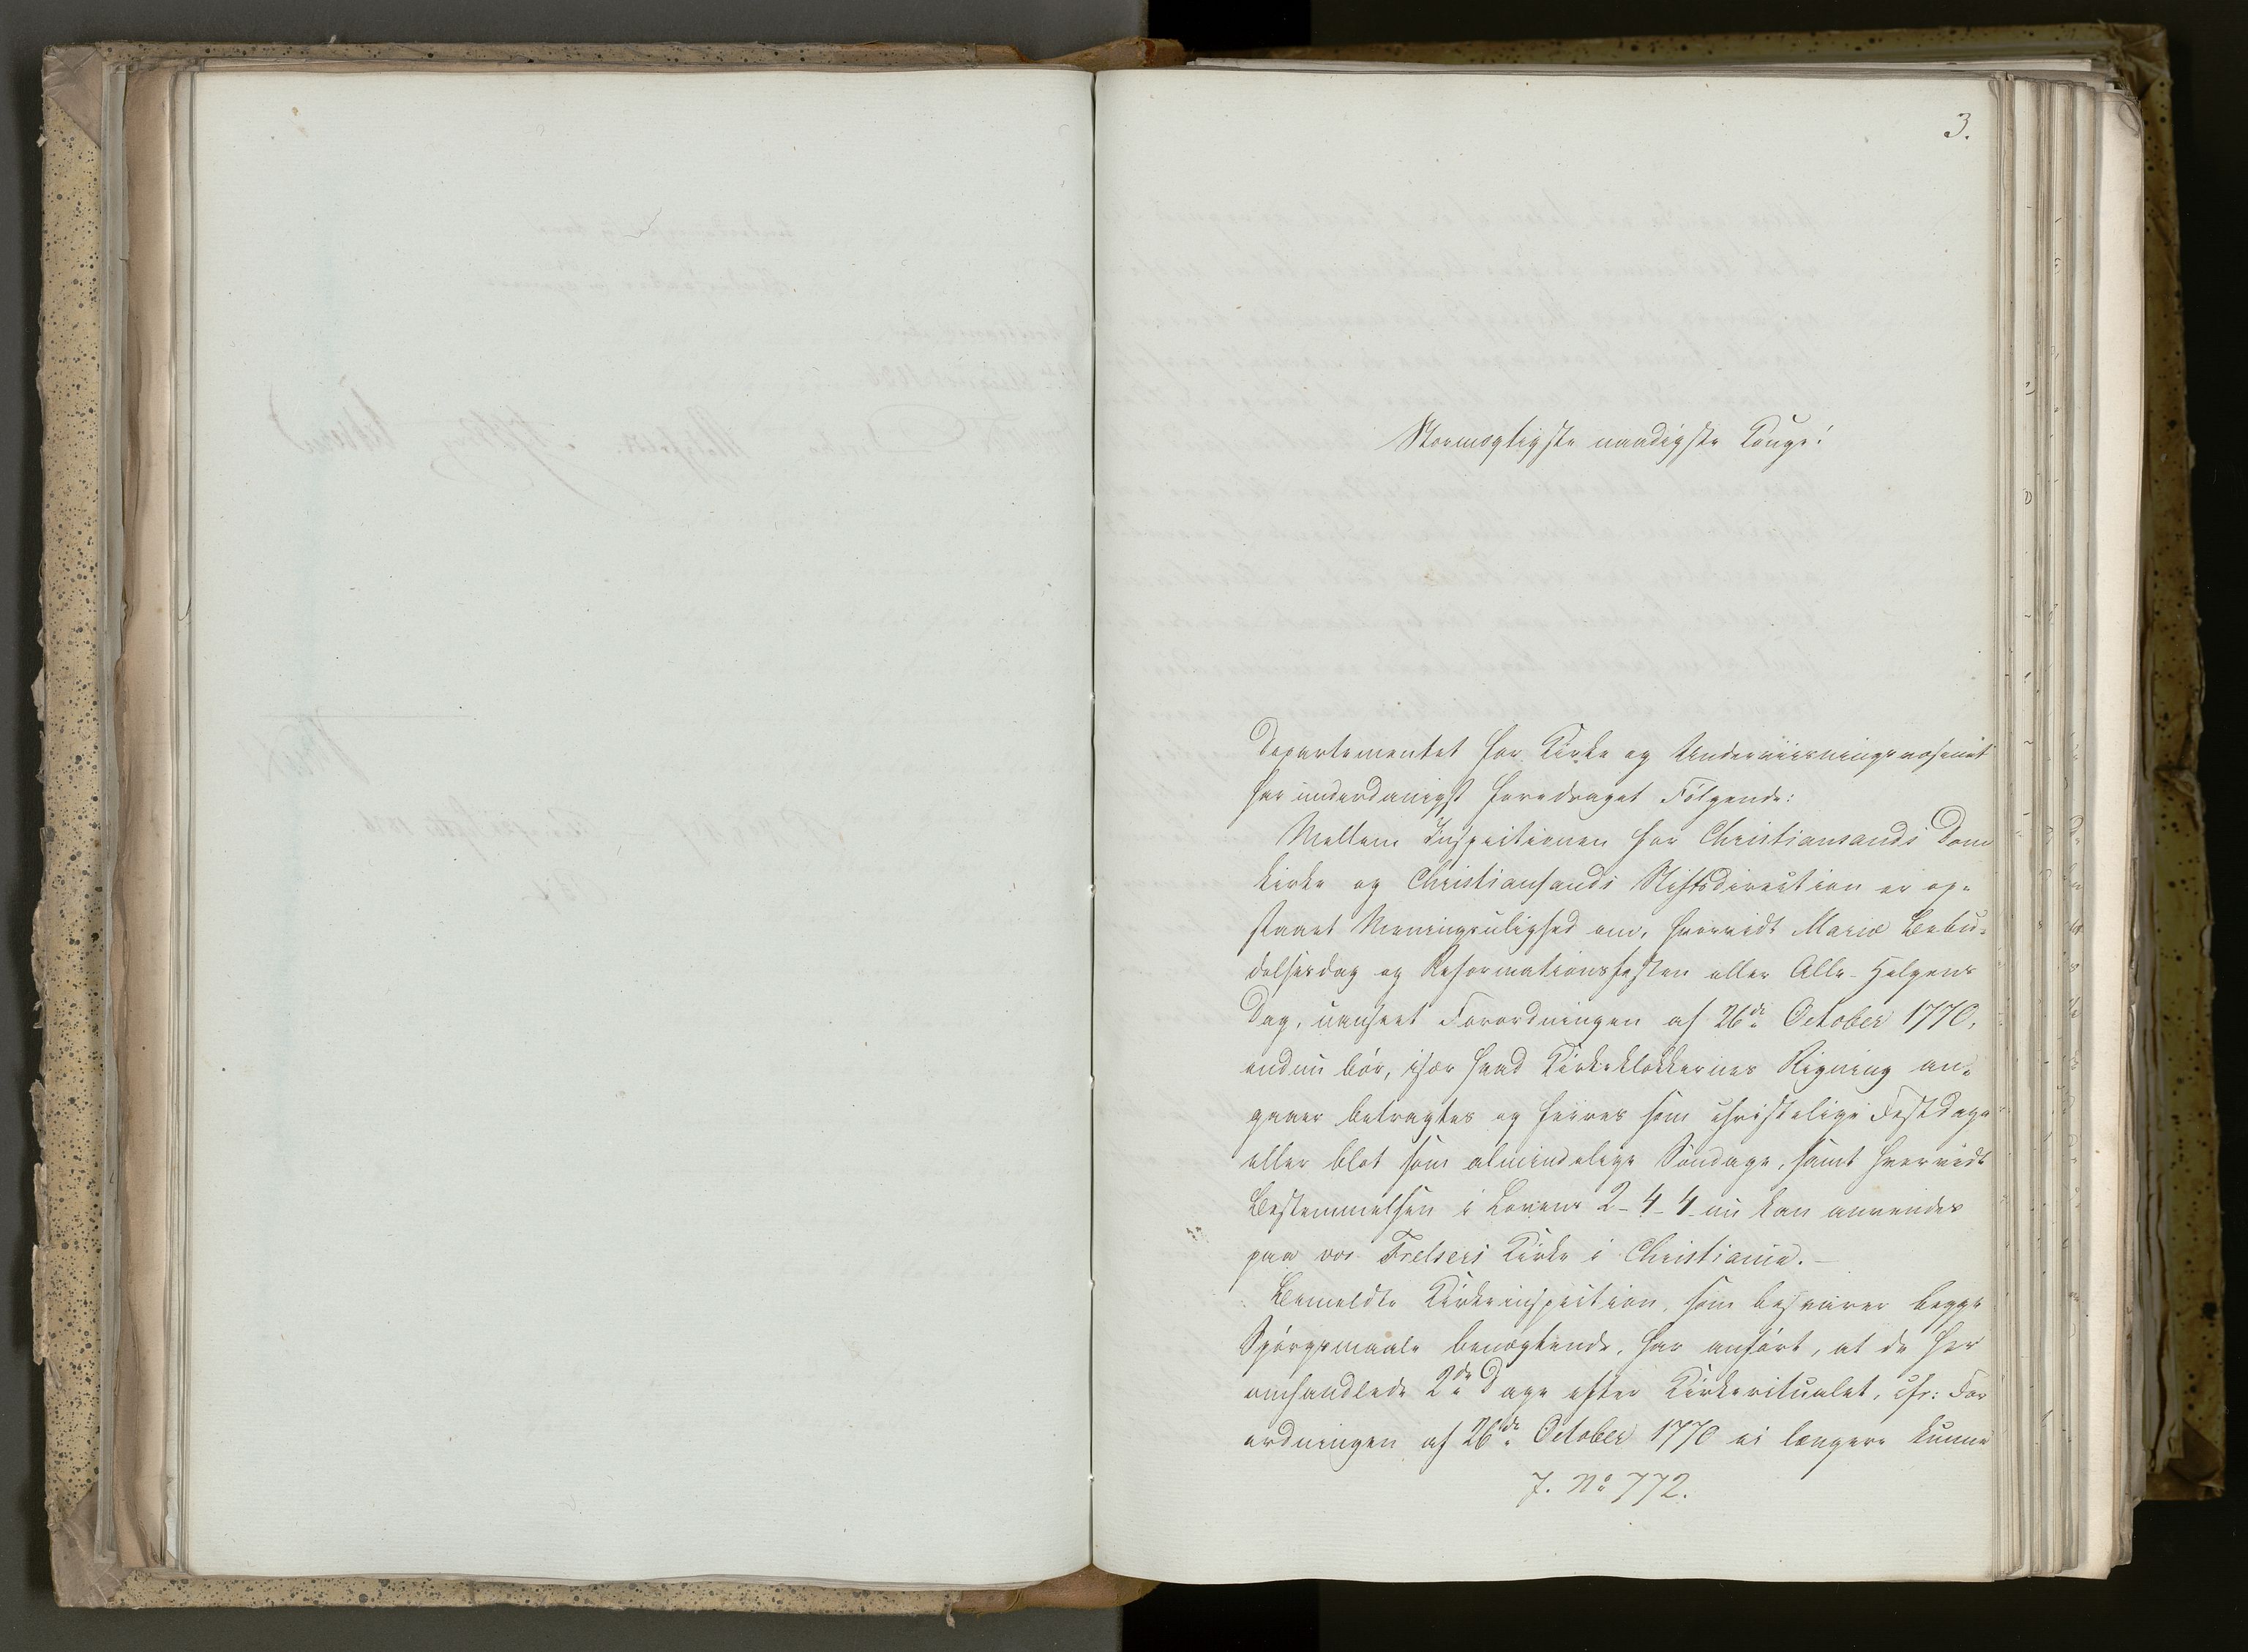 3.
Stormægtigste naadigste Konge!
Departementet for Kirke og Underviisningsvæsenet
har underdanigst foredraget Følgende:
Mellem Inspectionen for Christiansands Dom
kirke og Christiansands Stiftsdirection er op-
staaet Meningsulighed om, hvorvidt Mariæ Bebu-
delsesdag og Reformationsfesten eller Alle-Helgens
Dag, uanseet Forordningen af 26de October 1770,
endnu bør, især hvad Kirkeklokkernes Ringning an-
gaaer betragtes og feires som christelige Festdage
eller blot som almindelige Søndage, samt hvorvidt
Bestemmelsen i Lovens 2-4-4 nu kan anvendes
paa vor Frelsers Kirke i Christiania. —
Bemeldte Kirkeinspection, som besvarer begge
Spørgsmaale benægtende, har anført, at de her
omhandlede 2de Dage efter Kirkeritualet, cfr: For
ordningen af 26de October 1770 ei længere kunne
J. No 772.